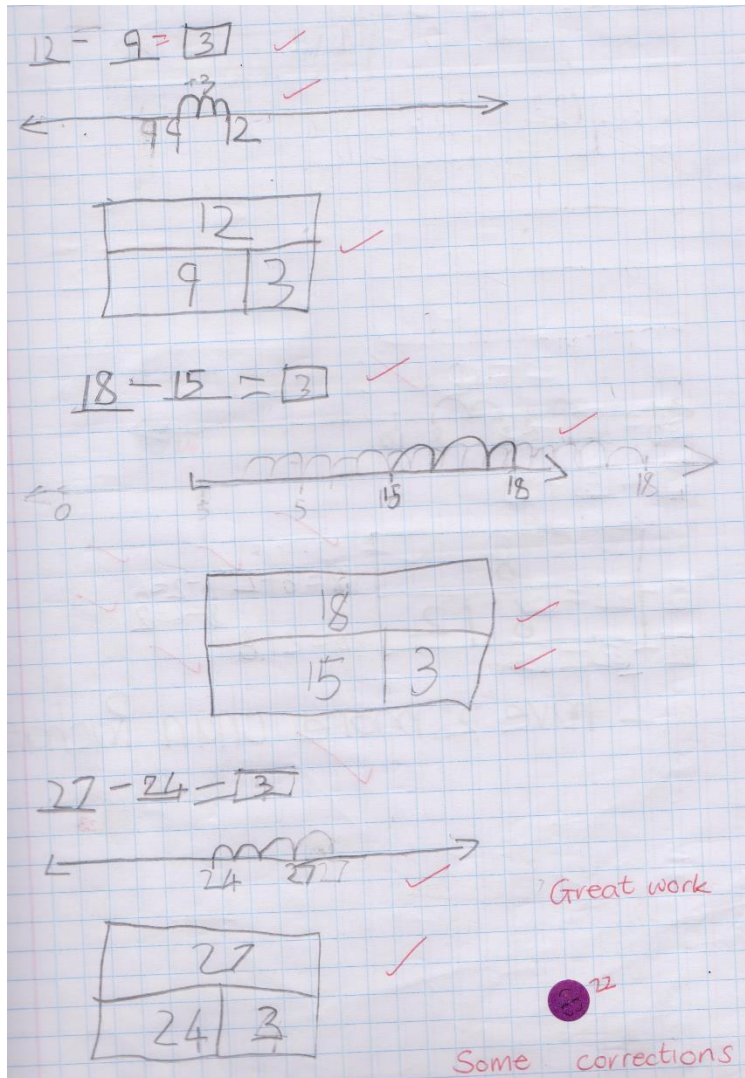 12 - 9 = 3
+3
9 9 12
12
9 3
18 - 15 = 3
0 5 15 18 18
18
15 3
27 - 24 = 3
24 27 27
Great work
27
22
24 3
Some corrections